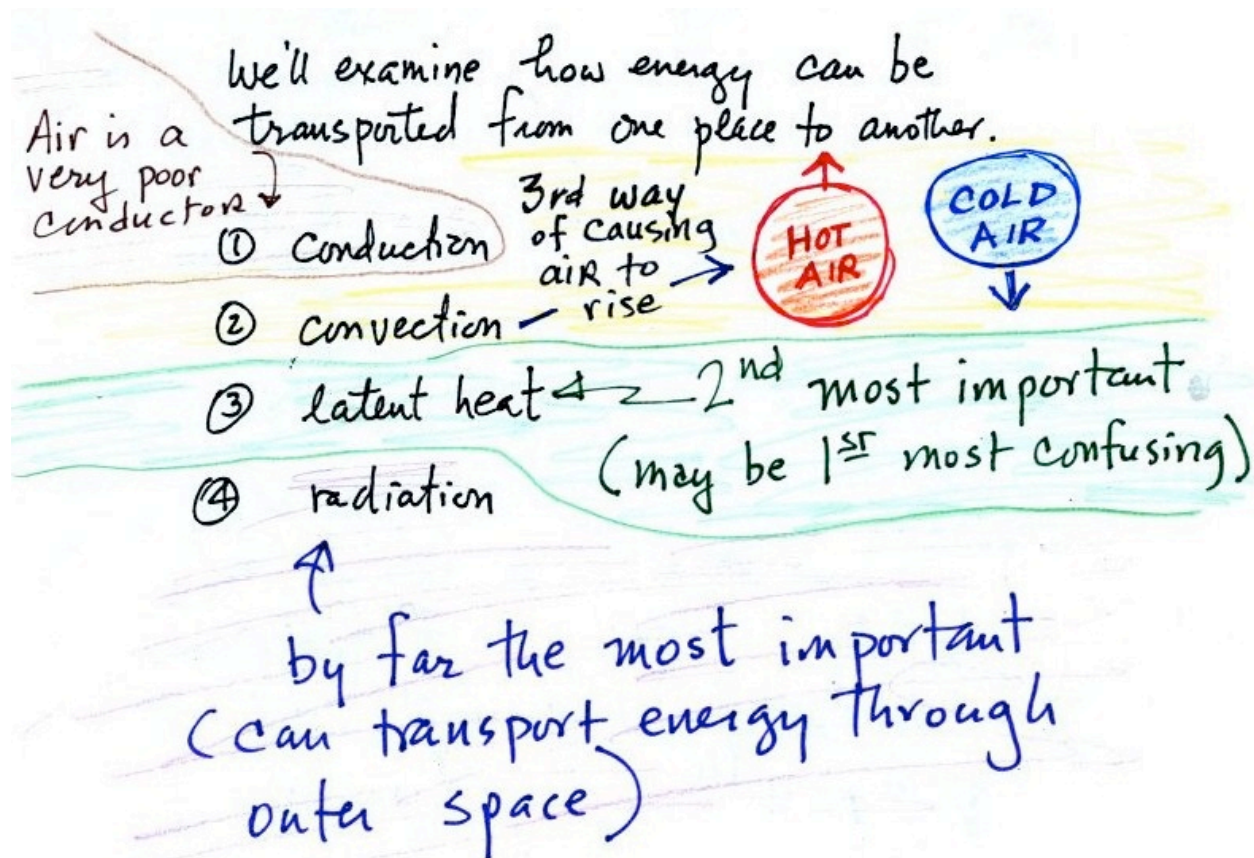 We'll examine how energy can be
transported from one place to another.
Air is a
very poor
conductor
① Conduction
3rd way
of causing
air to
rise
HOT
AIR
COLD
AIR
② convection
③ latent heat
2nd most important
(may be 1st most confusing)
④ radiation
by far the most important
(can transport energy through
outer space)